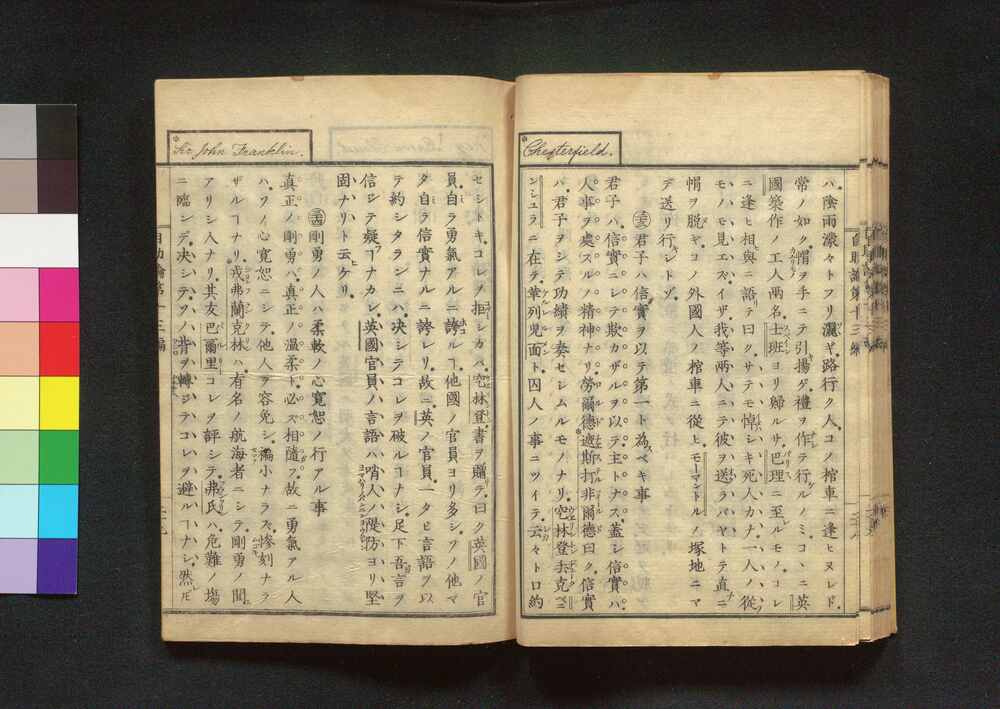 Chesterfield.
ハ陰雨濛々トフリ灑ギ、路行ク人、コノ棺車ニ逢ヒヌレド、
常ノ如ク、帽ヲ手ニテ引揚ゲ、禮ヲ作テ行ルノミ、コヽニ英
國築作ノ工人両名、士班ヨリ歸ルサ、巴理ニ至ルモノ、コレ
ニ逢ヒ、相與ニ語テ曰ク、サテモ悼シキ死人カナ、一人ノ從
モノモ見エズ、イザ我等両人ニテ彼ヲ送ラバヤトテ、直ニ
帽ヲ脱ギ、コノ外國人ノ棺車ニ從ヒ、モーマントルノ塚地ニマ
デ送リ行シトゾ、
君子ハ信實ヲ以テ第一ト為ベキ事
君子ハ、信實ニシテ欺カザルヲ以テ、主トナス、蓋シ信實ハ、
人事ヲ處スルノ精神ナリ、勞爾德遮斯打非爾德曰ク、信實
ハ、君子ヲシテ功績ヲ奏セシムルモノナリ、空林登、克
ニ在テ、華列兒面ト囚人ノ事ニツイテ、云々トロ約
Sir John Franklin.
セシトキ、コレヲ拒シカバ、空林登書ヲ贈テ曰ク、英國ノ官
員、自ラ勇氣アルニ誇ルヿ、他國ノ官員ヨリ多シ、ソノ他マ
タ自ラ信實ナルニ誇レリ、故ニ英ノ官員、一タビ言語ヲ以
テ約シタランニハ、决シテコレヲ破ルヿナシ、足下吾言ヲ
信ジテ疑フヿナカレ、英國官員ノ言語ハ、哨人ノ隄防ヨリ堅
固ナリト云ケリ、
剛勇ノ人ハ柔軟ノ心寛恕ノ行アル事
真正ノ剛勇ハ、真正ノ温柔ト、必ズ相隨フ、故ニ勇氣アル人
ハ、ソノ心寛恕ニシテ、他人ヲ容免シ、褊小ナラズ、惨刻ナラ
ザルヿナリ、戎弗蘭克林ハ、有名ノ航海者ニシテ、剛勇ノ聞
アリシ人ナリ、其友巴爾里コレヲ評シテ、弗氏ハ、危難ノ塲
ニ臨シデ、决シテソノ背ヲ轉ジテコレヲ避ルヿナシ、然ドモ